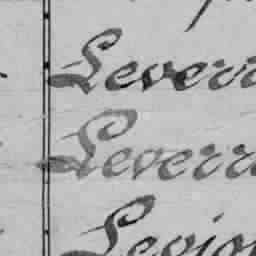 Leverr
Leverr
Levior